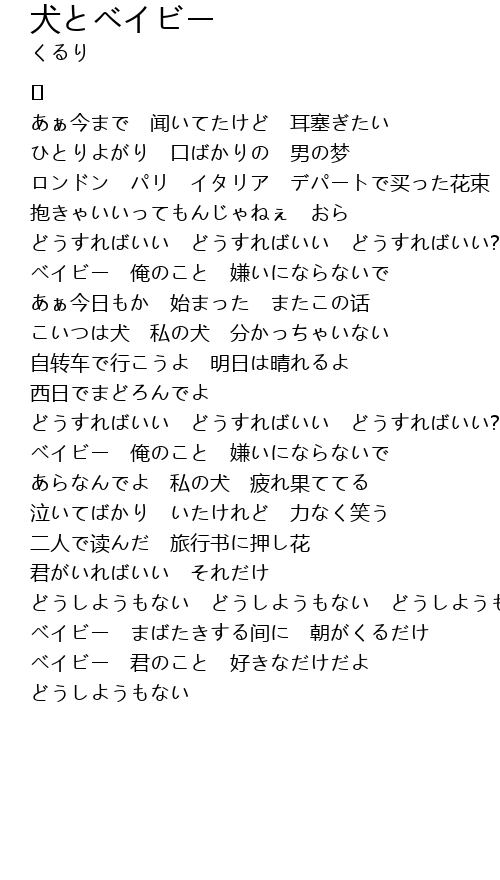 犬とベイビー
くるり
あぁ今まで　闻いてたけど　耳塞ぎたい
ひとりよがり　口ばかりの　男の梦
ロンドン　パリ　イタリア　デパートで买った花束
抱きゃいいってもんじゃねぇ　おら
どうすればいい　どうすればいい　どうすればいい?
ベイビー　俺のこと　嫌いにならないで
あぁ今日もか　始まった　またこの话
こいつは犬　私の犬　分かっちゃいない
自转车で行こうよ　明日は晴れるよ
西日でまどろんでよ
どうすればいい　どうすればいい　どうすればいい?
ベイビー　俺のこと　嫌いにならないで
あらなんでよ　私の犬　疲れ果ててる
泣いてばかり　いたけれど　力なく笑う
二人で读んだ　旅行书に押し花
君がいればいい　それだけ
どうしようもない　どうしようもない　どうしようも
ベイビー　まばたきする间に　朝がくるだけ
ベイビー　君のこと　好きなだけだよ
どうしようもない